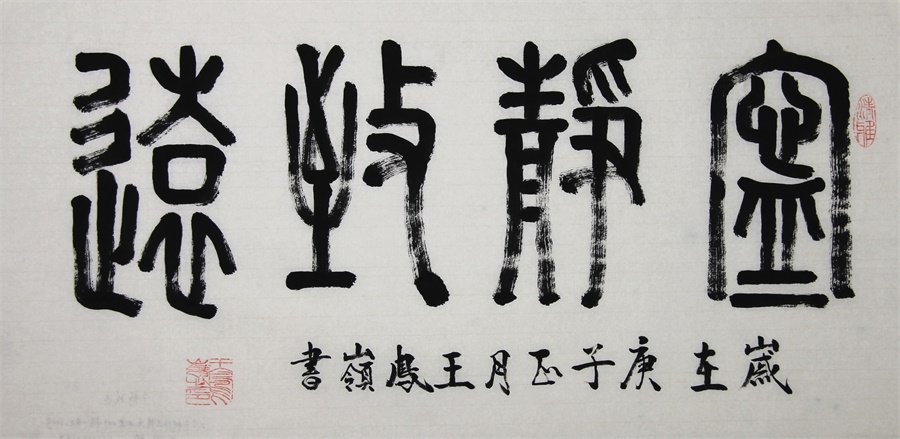 寧靜致遠
歲在庚子正月王鳳嶺書